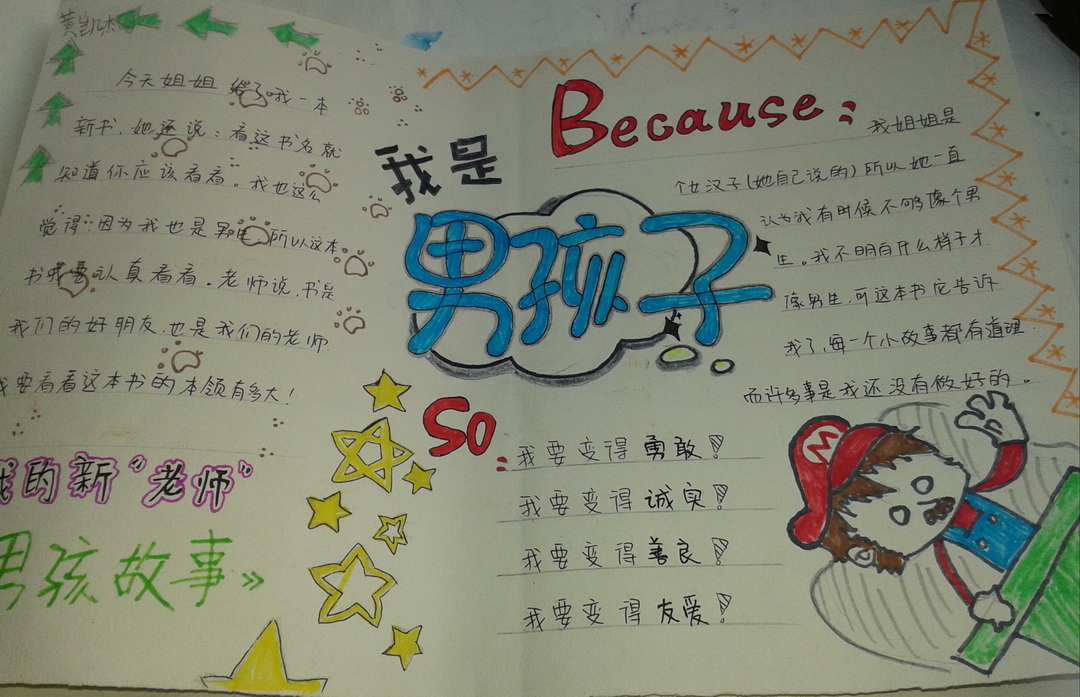 黄凯杰
今天姐姐 给了我一本
新书,她还说:看这书名就
知道你应该看看。我也这么
觉得:因为我也是男生 所以这本
书我要认真看看。老师说,书是
我们的好朋友,也是我们的老师
我要看看这本书的本领有多大!
我的新“老师”
男孩故事》
我是
男孩子
Because:
我姐姐是
个女汉子(她自己说的)所以她一直
认为我有时候不够像个男
生。我不明白什么样子才
像男生,可这本书它告诉
我了,每一个小故事都有道理
而许多事是我还没有做好的。
So:
我要变得勇敢!
我要变得诚实!
我要变得善良!
我要变得友爱!
M